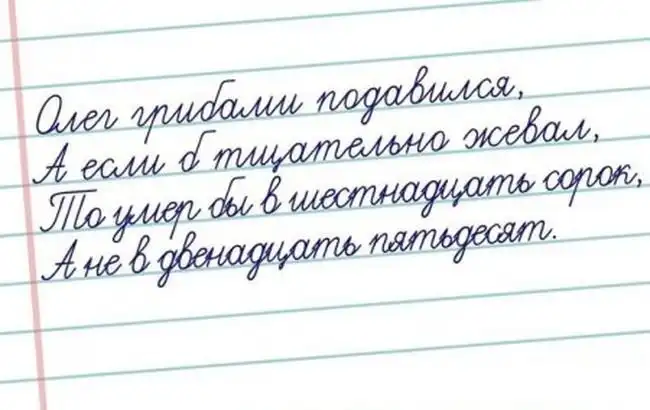 Олег грибами подавился,
А если б тщательно жевал,
То умер бы в шестнадцать сорок,
А не в двенадцать пятьдесят.